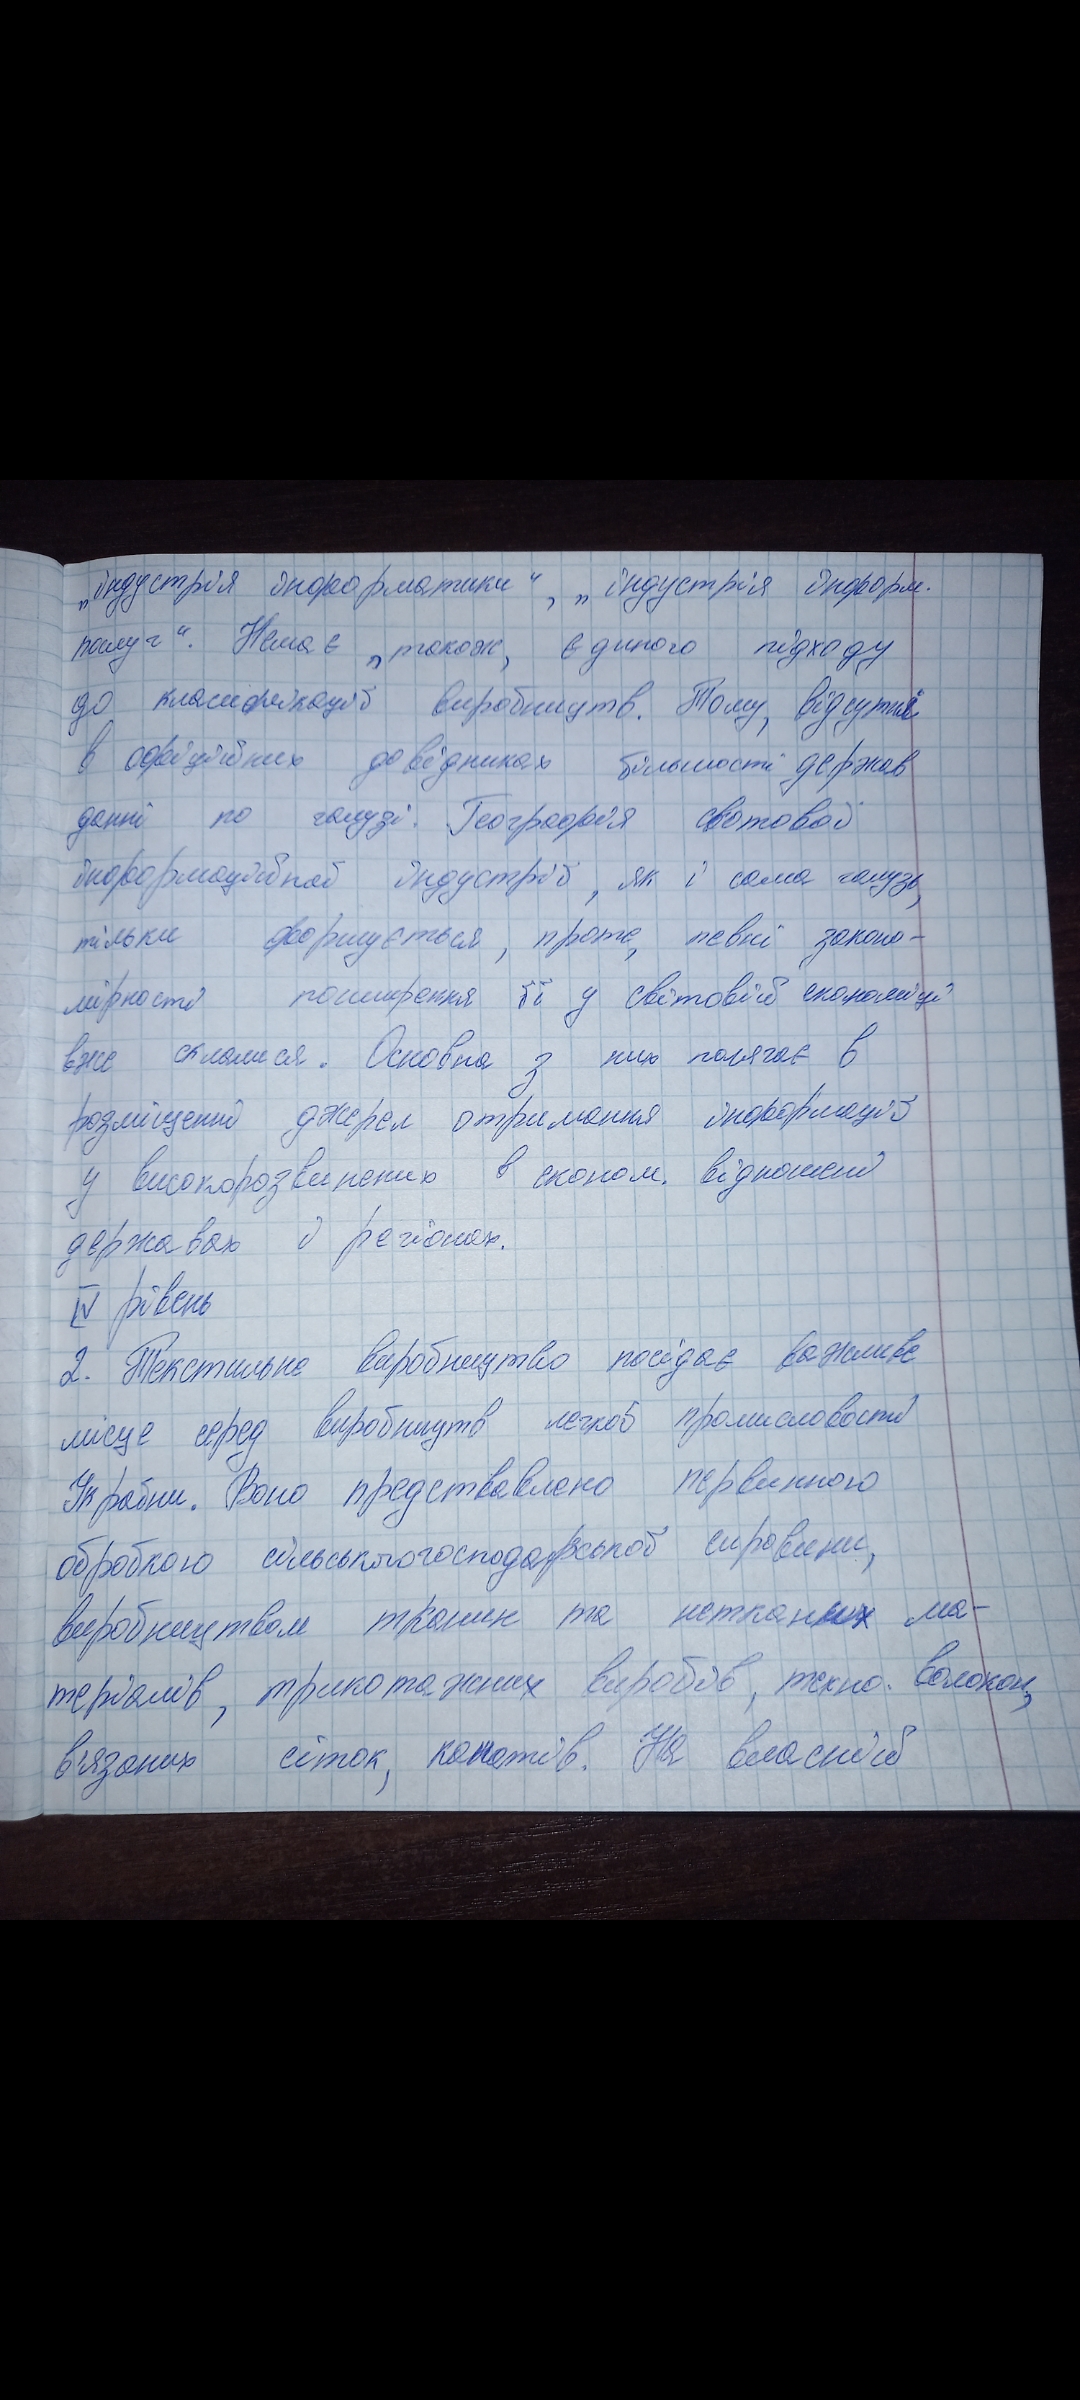 „індустрія інформатики“, „індустрія інформ.
послуг“. Немає „також, єдиного підходу
до класифікації виробництв. Тому, відсутні
в офіційних довідниках більшості держав
данні по галузі. Географія світової
інформаційної індустрії, як і сама галузь,
тільки формується, проте, певні законо-
мірності поширення її у світовій економіці
вже склалися. Основна з них полягає в
розміщенні джерел отримання інформації
у високорозвинених в економ. відношенні
державах і регіонах.
IV рівень
2. Текстильне виробництво посідає важливе
місце серед виробництв легкої промисловості
України. Воно представлено первинною
обробкою сільськогосподарської сировини,
виробництвом тканин та нетканих ма-
теріалів, трикотажних виробів, техно. волокон,
вязаних сіток, канатів. На власній